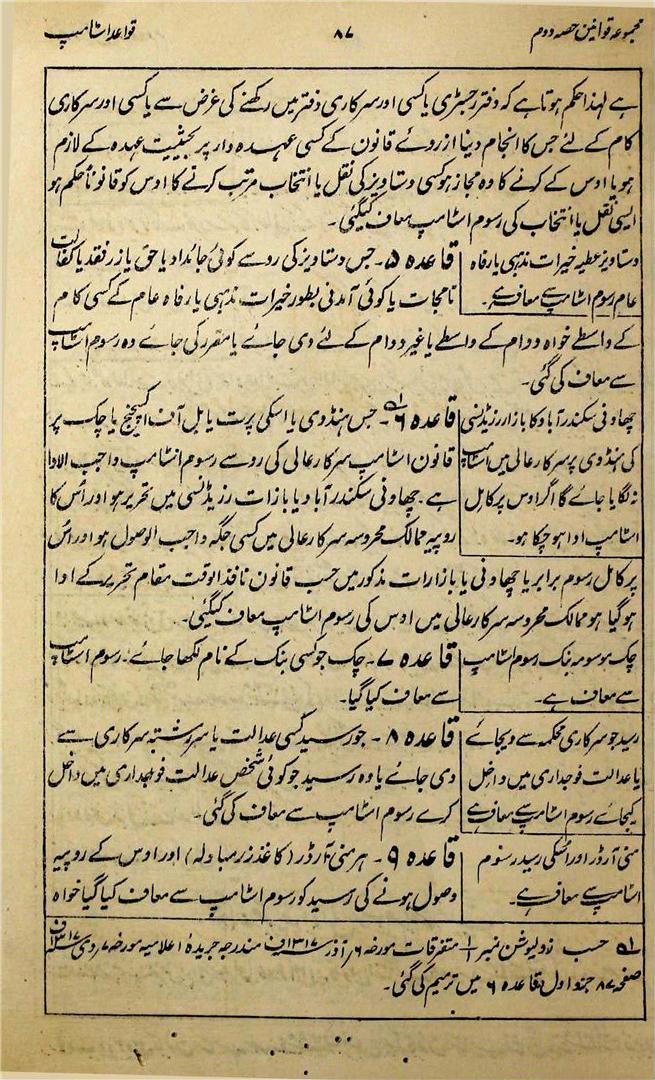 مجموعہ قوانین حصہ دوم
۸۷
قواعد اسٹامپ
ہے لہذا حکم ہوتا ہے کہ دفتر رجسٹری یا کسی اور سرکاری دفتر میں رکھنے کی غرض سے یا کسی اور سرکاری
کام کے لئے جس کا انجام دینا ازروئے قانون کے کسی عہدہ دار پر بحیثیت عہدہ کے لازم
ہو یا اوس کے کرنے کا وہ مجاز ہو کسی دستاویز کی نقل یا انتخاب مرتب کرنے کا اوس کو قانوناً حکم ہو
ایسی نقل یا انتخاب کی رسوم اسٹامپ معاف کیگئی۔
دستاویز عطیہ خیرات مذہبی یا رفاہ
عام رسوم اسٹامپ سے معاف ہے۔
قاعدہ ۵۔ جس دستاویز کی رو سے کوئی جائداد یا حق یا زر نقد یا کفالت
نامجات یا کوئی آمدنی بطور خیرات مذہبی یا رفاہ عام کے کسی کام
کے واسطے خواہ دوام کے واسطے یا غیر دوام کے لئے دی جائے یا مقرر کی جائے وہ رسوم اسٹامپ
سے معاف کی گئی۔
چھاونی سکندرآباد کا بازار رزیڈنسی
کی ہنڈوی پر سرکار عالی میں اسٹامپ
نہ لگایا جائے گا اگر اوس پر کامل
اسٹامپ ادا ہو چکا ہو۔
قاعدہ ۶ ۱ف۔ جس ہنڈوی یا اسکی پرت یا بل آف اکسچینج یا چک پر
قانون اسٹامپ سرکار عالی کی رو سے رسوم اسٹامپ واجب الادا
ہے۔ چھاونی سکندرآباد یا بازارات رزیڈنسی میں تحریر ہو اور اُس کا
روپیہ ممالک محروسہ سرکار عالی میں کسی جگہ واجب الوصول ہو اور اُس
پر کامل رسوم برابر یا چھاونی یا بازارات مذکور میں حسب قانون نافذ الوقت مقام تحریر کے ادا
ہو گیا ہو ممالک محروسہ سرکار عالی میں اوس کی رسوم اسٹامپ معاف کیگئی۔
چک موسومہ بنک رسوم اسٹامپ
سے معاف ہے۔
قاعدہ ۷۔ چک جو کسی بنک کے نام لکھا جائے۔ رسوم اسٹامپ
سے معاف کیا گیا۔
رسید جو سرکاری محکمہ سے دیجائے
یا عدالت فوجداری میں داخل
کیجائے رسوم اسٹامپ سے معاف ہے
قاعدہ ۸۔ جو رسید کسی عدالت یا سررشتہ سرکاری سے
دی جائے یا وہ رسید جو کوئی شخص عدالت فوجداری میں داخل
کرے رسوم اسٹامپ سے معاف کی گئی۔
منی آرڈر اور اُسکی رسید رسوم
اسٹامپ سے معاف ہے۔
قاعدہ ۹۔ ہر منی آرڈر (کاغذ زر مبادلہ) اور اوس کے روپیہ
وصول ہونے کی رسید کو رسوم اسٹامپ سے معاف کیا گیا خواہ
۱ف حسب رزولیوشن نمبر ۱/ متفرقات مورخہ ۶؍ آذر ۱۳۱۷ف مندرجہ جریدۂ اعلامیہ مورخہ ۷؍ دی ۱۳۱۷ف
صفحہ ۸۷ جزو اول قاعدہ ۶ میں ترمیم کی گئی۔